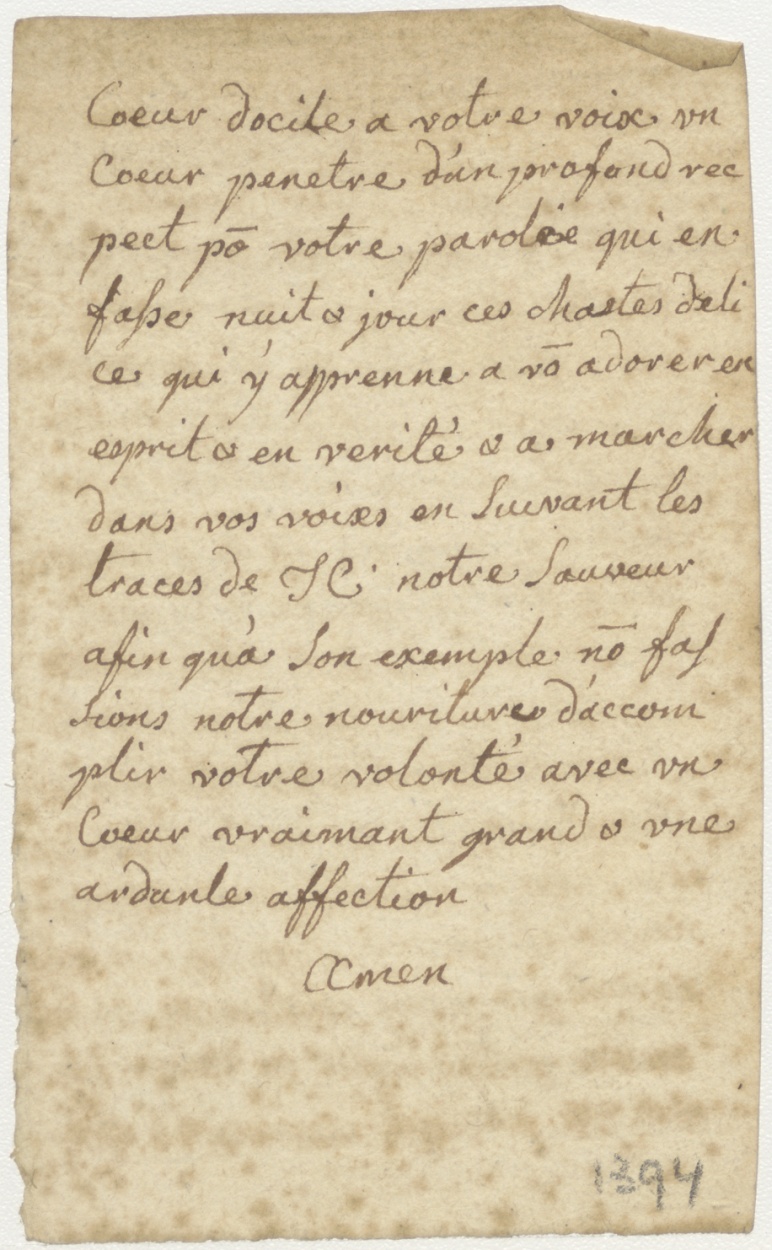 Coeur docile a votre voix vn
Coeur penetre d'un profond rec
pect pō votre parolie qui en
fasse nuit & jour ces chastes deli
ce qui y apprenne a vō adorer en
esprit & en verité & a marcher
dans vos voixs en suivant les
traces de JC. notre Sauveur
afin qu'a son exemple nō fas
sions notre nouriture d'accom
plir votre volonté avec vn
Coeur vraimant grand & vne
ardante affection
Amen
1394